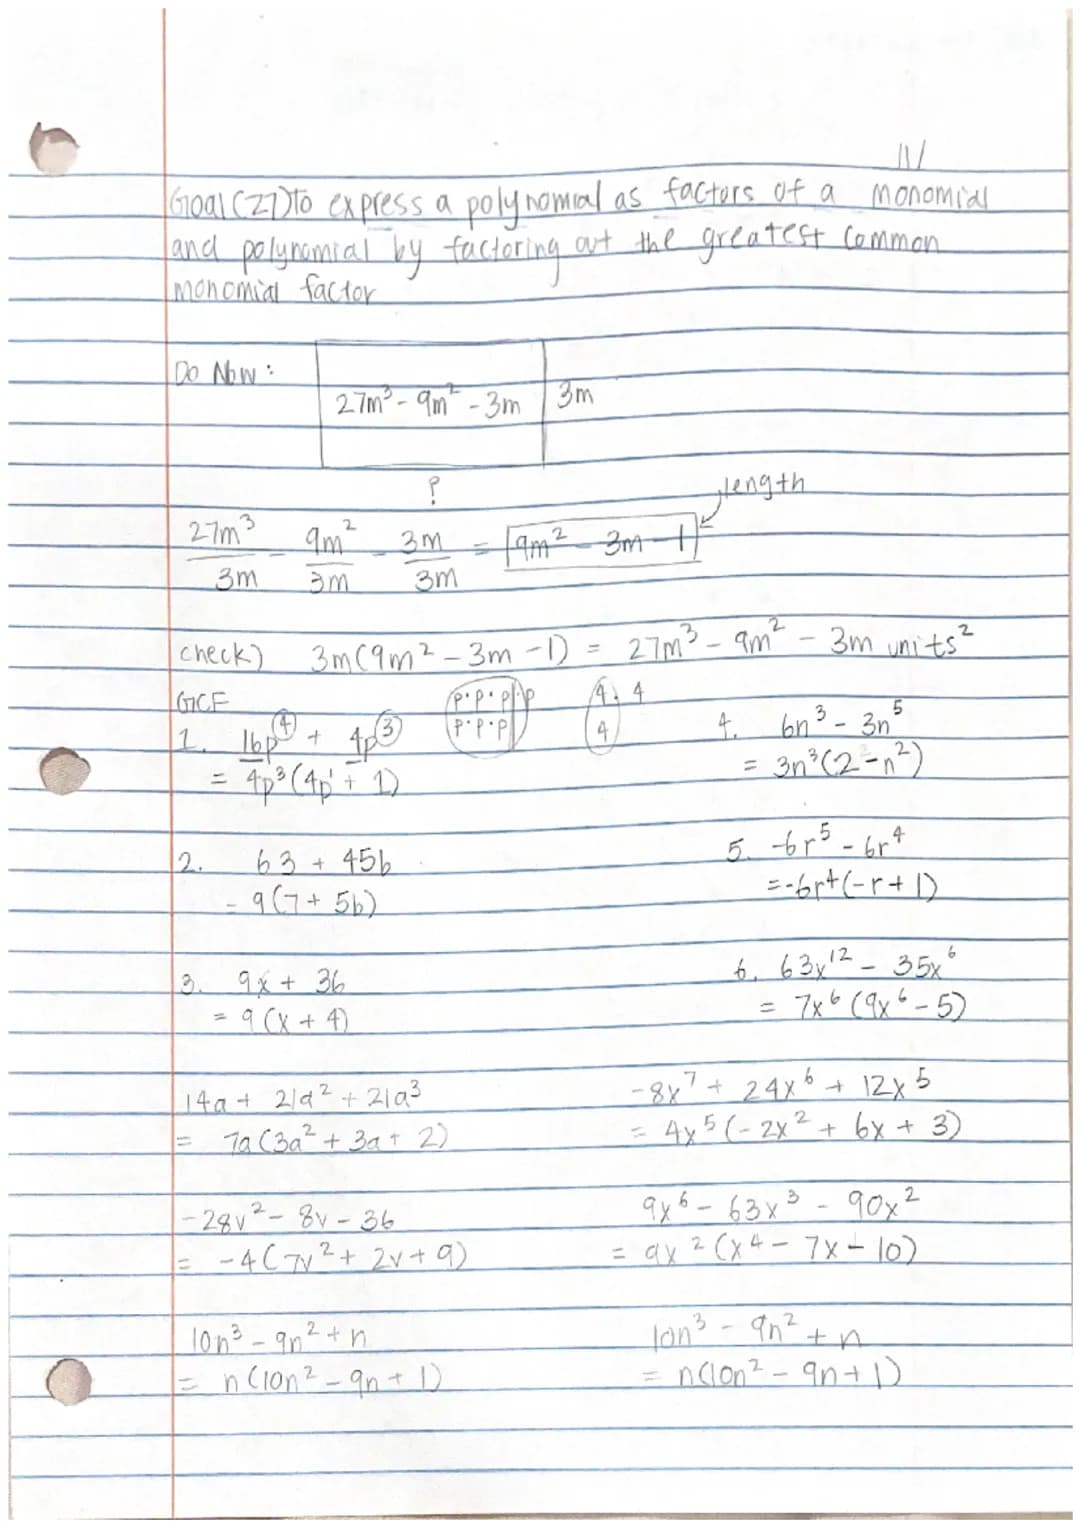 IV
Goal (27) to express a polynomial as factors of a monomial
and polynomial by factoring out the greatest common
monomial factor
Do Now:
27m³ - 9m² - 3m
3m
?
length
27m³/3m - 9m²/3m - 3m/3m = 9m² - 3m - 1
check) 3m(9m² - 3m - 1) = 27m³ - 9m² - 3m units²
GCF
p·p·p·p
p·p·p
4·4
4
1. 16p⁴ + 4p³
= 4p³(4p¹ + 1)
2. 63 + 45b
= 9(7 + 5b)
3. 9x + 36
= 9(x + 4)
4. 6n³ - 3n⁵
= 3n³(2 - n²)
5. -6r⁵ - 6r⁴
= -6r⁴(-r + 1)
6. 63x¹² - 35x⁶
= 7x⁶(9x⁶ - 5)
14a + 21a² + 21a³
= 7a(3a² + 3a + 2)
-8x⁷ + 24x⁶ + 12x⁵
= 4x⁵(-2x² + 6x + 3)
-28v² - 8v - 36
= -4(7v² + 2v + 9)
9x⁶ - 63x³ - 90x²
= 9x²(x⁴ - 7x - 10)
10n³ - 9n² + n
= n(10n² - 9n + 1)
10n³ - 9n² + n
= n(10n² - 9n + 1)